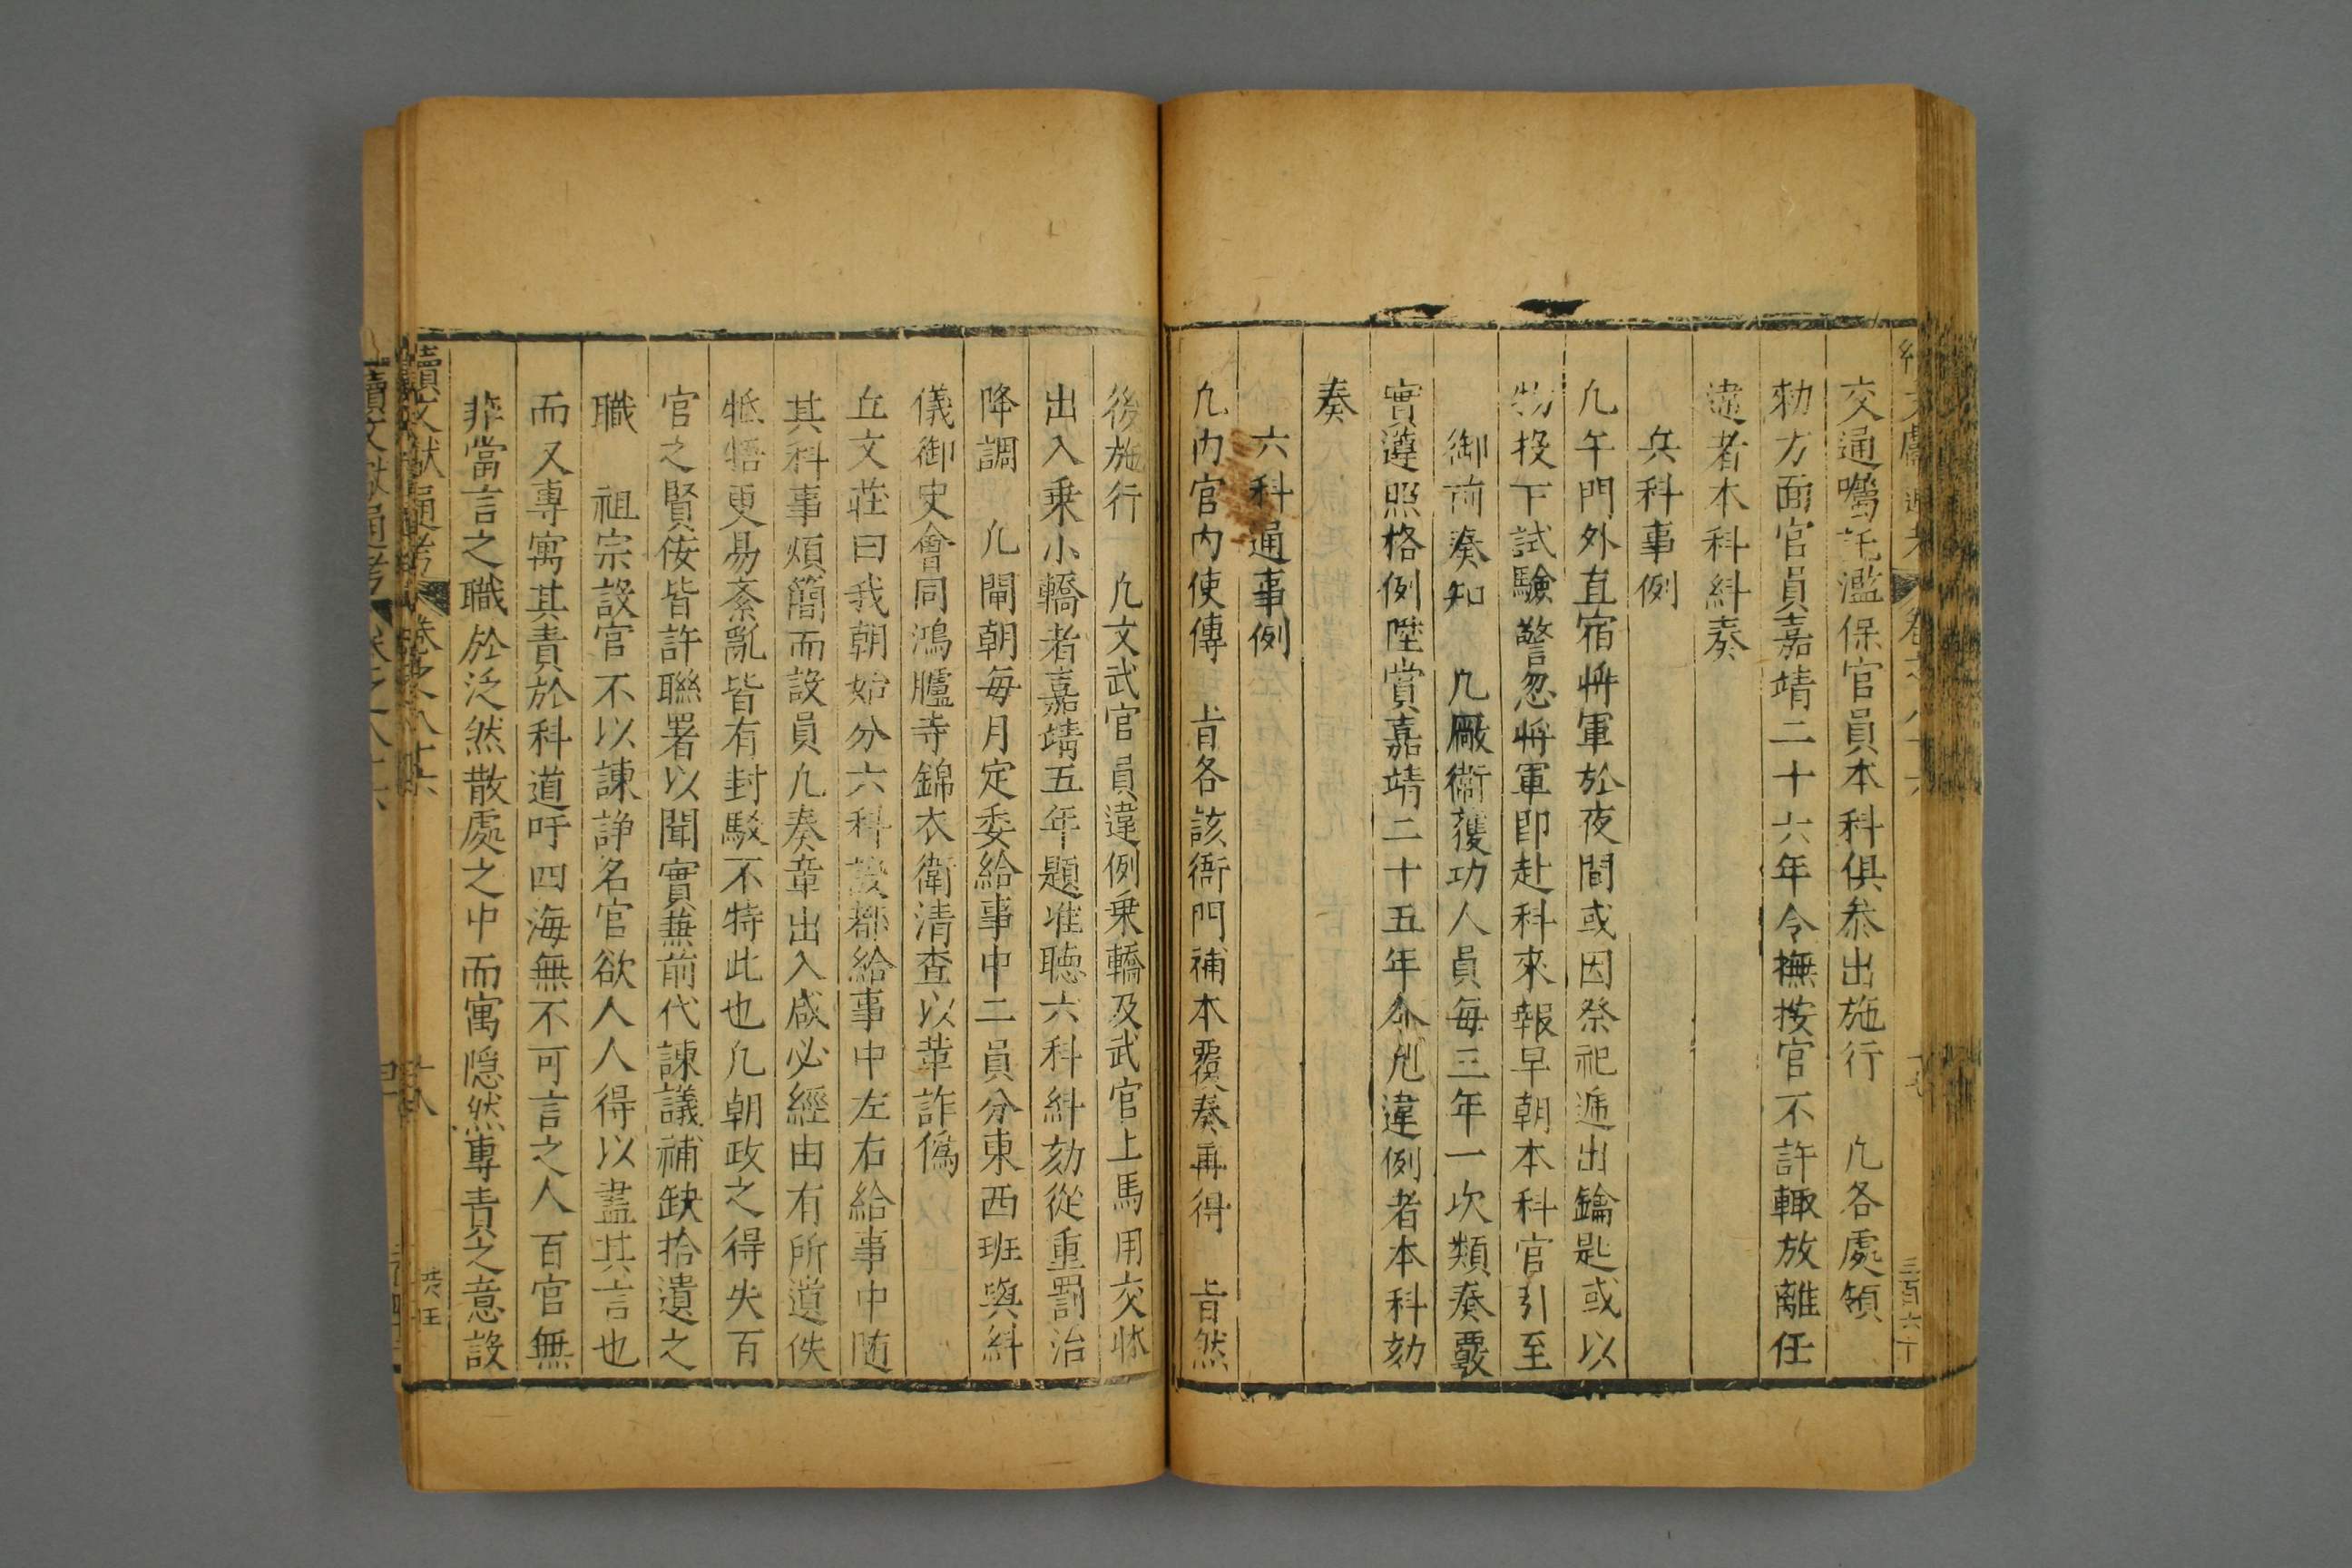 交通囑託濫保官員本科俱叅出施行　凡各處領
勑方面官員嘉靖二十六年令撫按官不許輙放離任
違者本科糾奏
兵科事例
凡午門外直宿將軍於夜間或因祭祀遞出鑰匙或以
物投下試驗警忽將軍即赴科來報早朝本科官引至
御前奏知　凡廠衛獲功人員每三年一次類奏覈
實遵照格例陞賞嘉靖二十五年令凡違例者本科劾
奏
六科通事例
凡內官內使傳　旨各該衙門補本覆奏再得　旨然
後施行　凡文武官員違例乗轎及武官上馬用交牀
出入乗小轎者嘉靖五年題准聽六科糾劾從重罰治
降調　凡閘朝每月定委給事中二員分東西班與糾
儀御史會同鴻臚寺錦衣衛清查以革詐偽
丘文莊曰我朝始分六科設都給事中左右給事中随
其科事煩簡而設員凡奏章出入咸必經由有所遺佚
牴牾更易紊亂皆有封駁不特此也凡朝政之得失百
官之賢佞皆許聯署以聞實兼前代諫議補缺拾遺之
職　祖宗設官不以諫諍名官欲人人得以盡其言也
而又專寓其責於科道吁四海無不可言之人百官無
非當言之職於泛然散處之中而寓隱然專責之意設
續文獻通考　卷之八十六